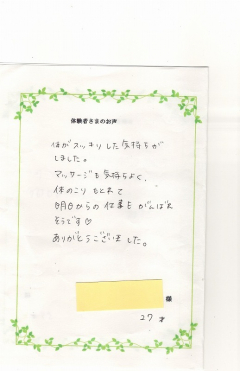 体験者さまのお声
体がスッキリした気持ちが
しました。
マッサージも気持ちよく、
体のこりもとれて
明日からの仕事もがんばれ
そうです
ありがとうございました。
様
27才